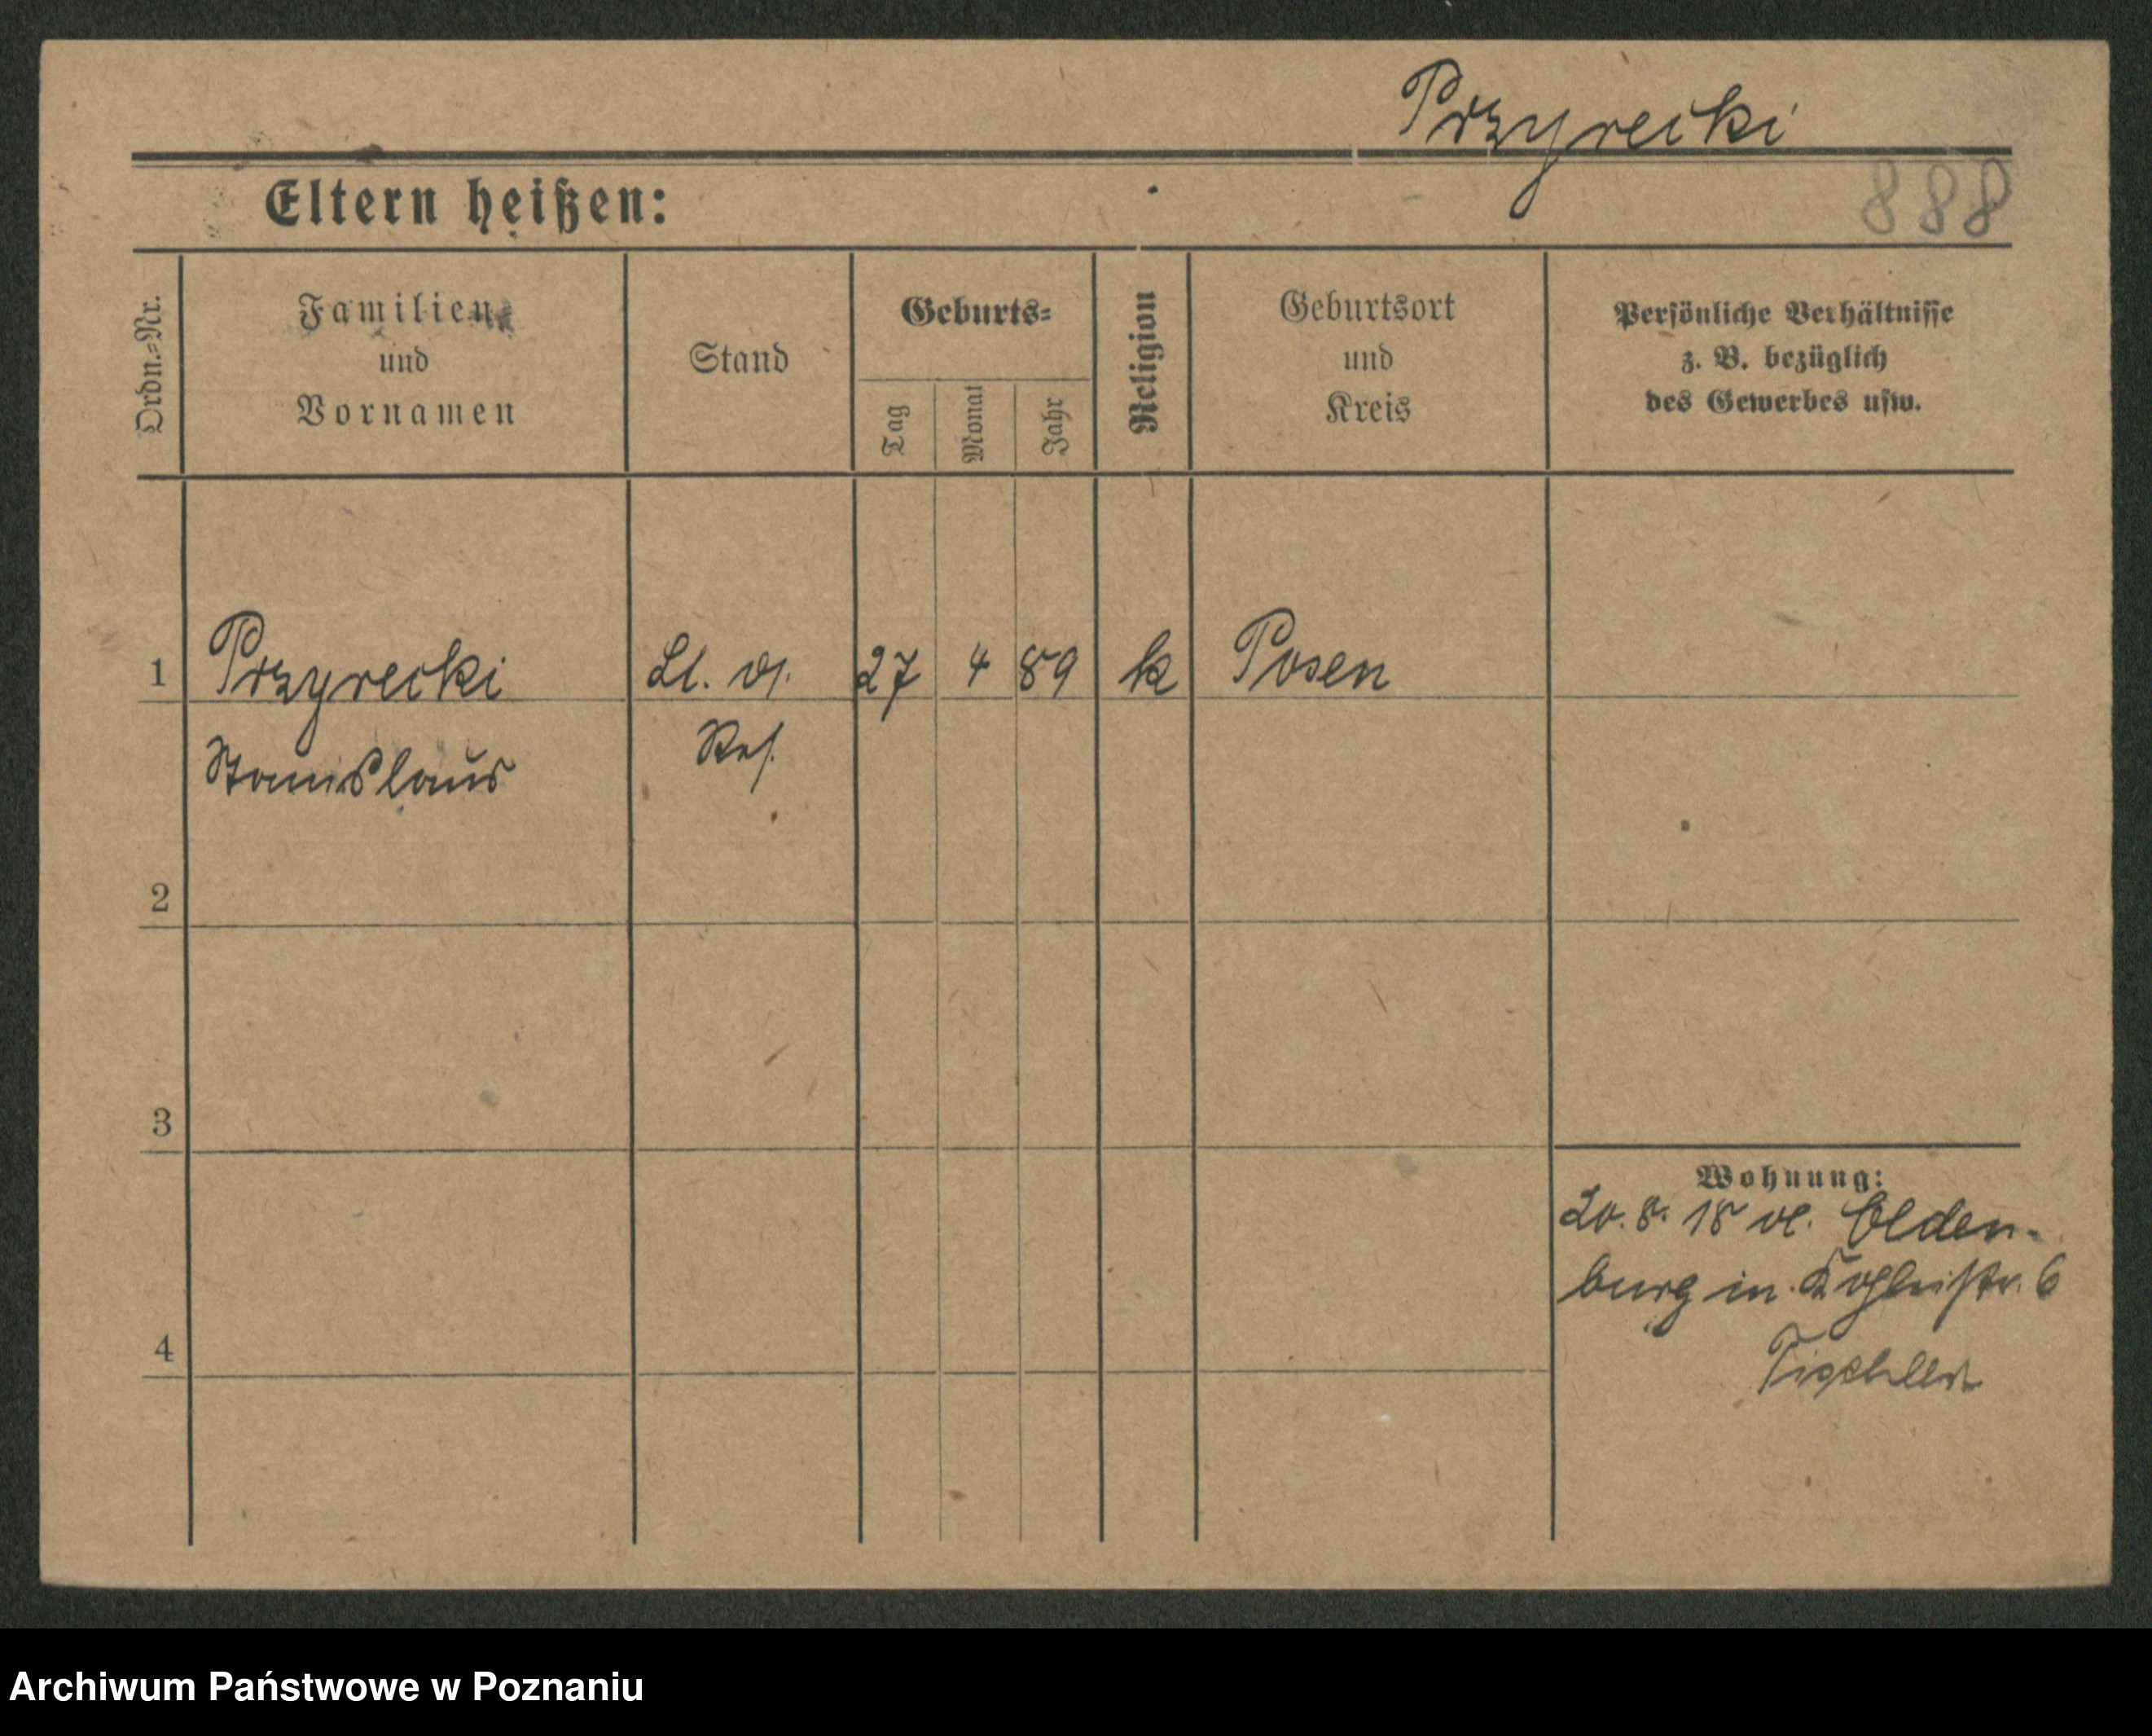 Przyrecki
888
Eltern heißen:
Ordn.=Nr.
Familien=
und
Vornamen
Stand
Geburts=
Tag
Monat
Jahr
Religion
Geburtsort
und
Kreis
Persönliche Verhältnisse
z. B. bezüglich
des Gewerbes usw.
1 Przyrecki Lt. d. 27 4 89 k Posen
Stanislaus Res.
2
3
Wohnung:
20. 8. 18 Olden-
burg in 6
4
Archiwum Państwowe w Poznaniu